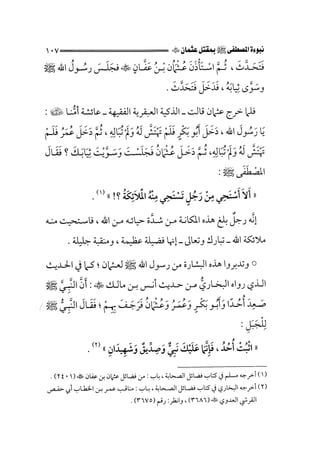 نبوءة المصطفى ﷺ بمقتل عثمان ﷺ ١٠٧
فَتَحَدَّثَ ، ثُمَّ اسْتَأْذَنَ عُثْمَانُ بْنُ عَفَّانٍ ﷺ فَجَلَسَ رَسُولُ الله ﷺ
وسَوَّى ثِيَابَهُ ، فَدَخَلَ فَتَحَدَّثَ .
فلما خرج عثمان قالت ـ الذكية العبقرية الفقيهة ـ عائشة أُمُّنَا :
يَا رَسُولَ الله ، دَخَلَ أَبُو بَكْرٍ فَلَمْ تَهْتَشَّ لَهُ وَلَمْ تُبَالِهِ ، ثُمَّ دَخَلَ عُمَرُ فَلَمْ
تَهْتَشَّ لَهُ وَلَمْ تُبَالِهِ، ثُمَّ دَخَلَ عُثْمَانُ فَجَلَسْتَ وَسَوَّيْتَ ثِيَابَكَ ؟ فَقَالَ
المُصْطَفَى ﷺ :
« أَلَا أَسْتَحِي مِنْ رَجُلٍ تَسْتَحِي مِنْهُ الْمَلَائِكَةُ ؟! » (١) .
إنَّه رجلٌ بلغ هذه المكانة من شدَّة حيائه من الله ، فاستحيت منه
ملائكة الله ـ تبارك وتعالى ـ إنها فضيلة عظيمة ، ومنقبة جليلة .
○ وتدبروا هذه البشارة من رسول الله ﷺ لعثمان ؛ كما في الحديث
الذي رواه البخاريُّ من حديث أنس بن مالك : أَنَّ النَّبِيَّ ﷺ
صَعِدَ أُحُدًا وَأَبُو بَكْرٍ وَعُمَرُ وَعُثْمَانُ فَرَجَفَ بِهِمْ ؛ فَقَالَ النَّبِيُّ ﷺ
لِلْجَبَلِ :
« اثْبُتْ أُحُدُ ، فَإِنَّمَا عَلَيْكَ نَبِيٌّ وَصِدِّيقٌ وَشَهِيدَانِ » (٢) .
(١) أخرجه مسلم في كتاب فضائل الصحابة ، باب : من فضائل عثمان بن عفان (٢٤٠١) .
(٢) أخرجه البخاري في كتاب فضائل الصحابة ، باب : مناقب عمر بن الخطاب أبي حفص
القرشي العدوي (٣٦٨٦) ، وانظر: رقم (٣٦٧٥) .